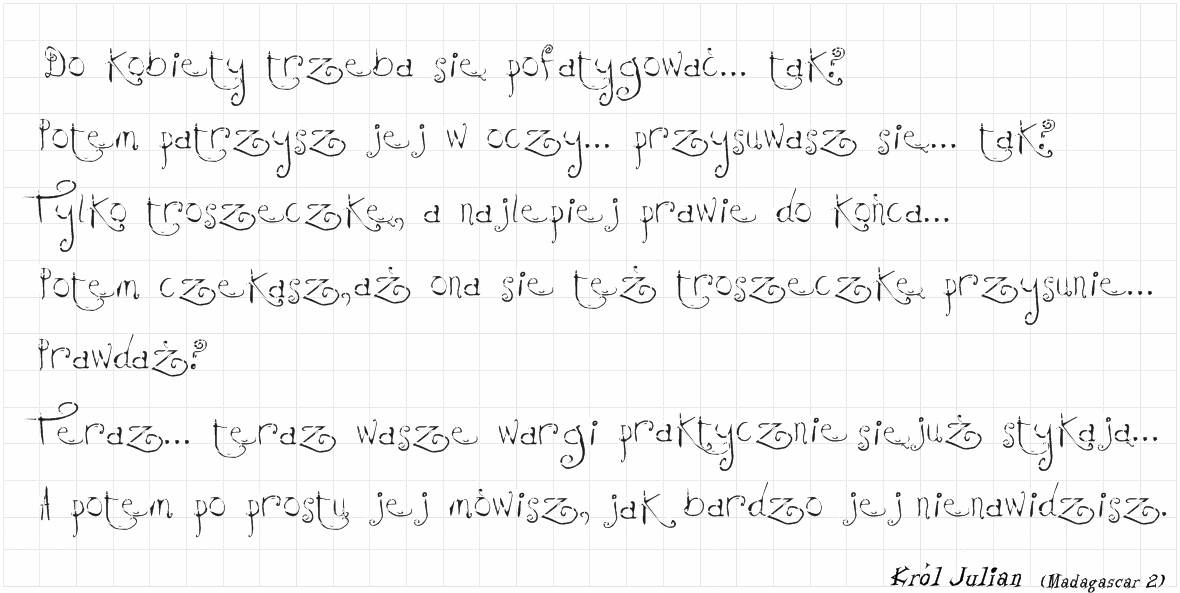 Do kobiety trzeba się pofatygować... tak?
Potem patrzysz jej w oczy... przysuwasz się... tak?
Tylko troszeczkę, a najlepiej prawie do końca...
Potem czekasz, aż ona sie też troszeczkę przysunie...
Prawdaż?
Teraz... teraz wasze wargi praktycznie się już stykają...
A potem po prostu jej mówisz, jak bardzo jej nienawidzisz.
Król Julian (Madagascar 2)